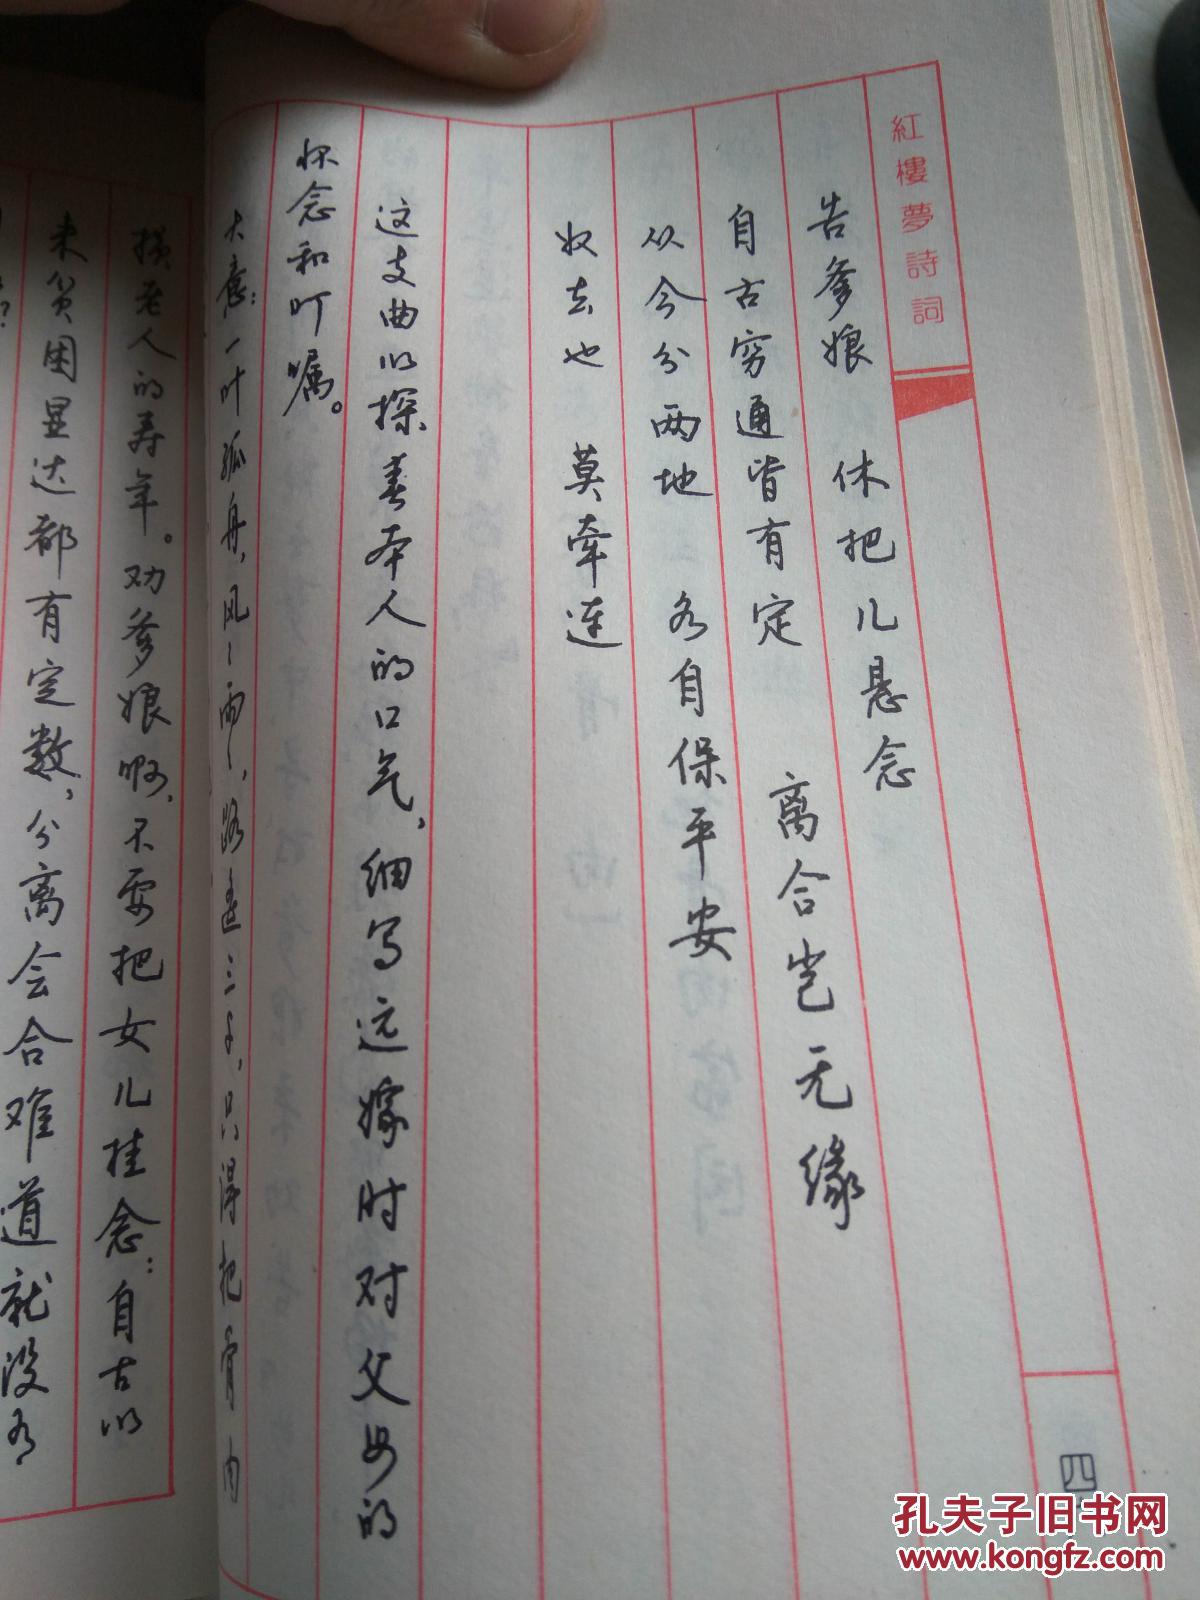 紅樓夢詩詞
告爹娘 休把儿悬念
自古穷通皆有定 离合岂无缘
从今分两地 各自保平安
奴去也 莫牵连
这支曲以探春本人的口气,细写远嫁时对父母的
怀念和叮嘱。
大意:一叶孤舟,风风雨雨,路遥三千,只得把骨肉
损老人的寿年。劝爹娘啊,不要把女儿挂念:自古以
来贫困显达都有定数,分离会合难道就没有
四
孔夫子旧书网
www.kongfz.com